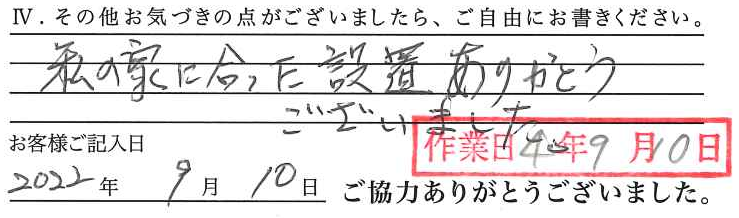 Ⅳ．その他お気づきの点がございましたら、ご自由にお書きください。
私の家に合った設置ありがとう
ございました。
お客様ご記入日
作業日4年9月10日
2022年 9月 10日 ご協力ありがとうございました。